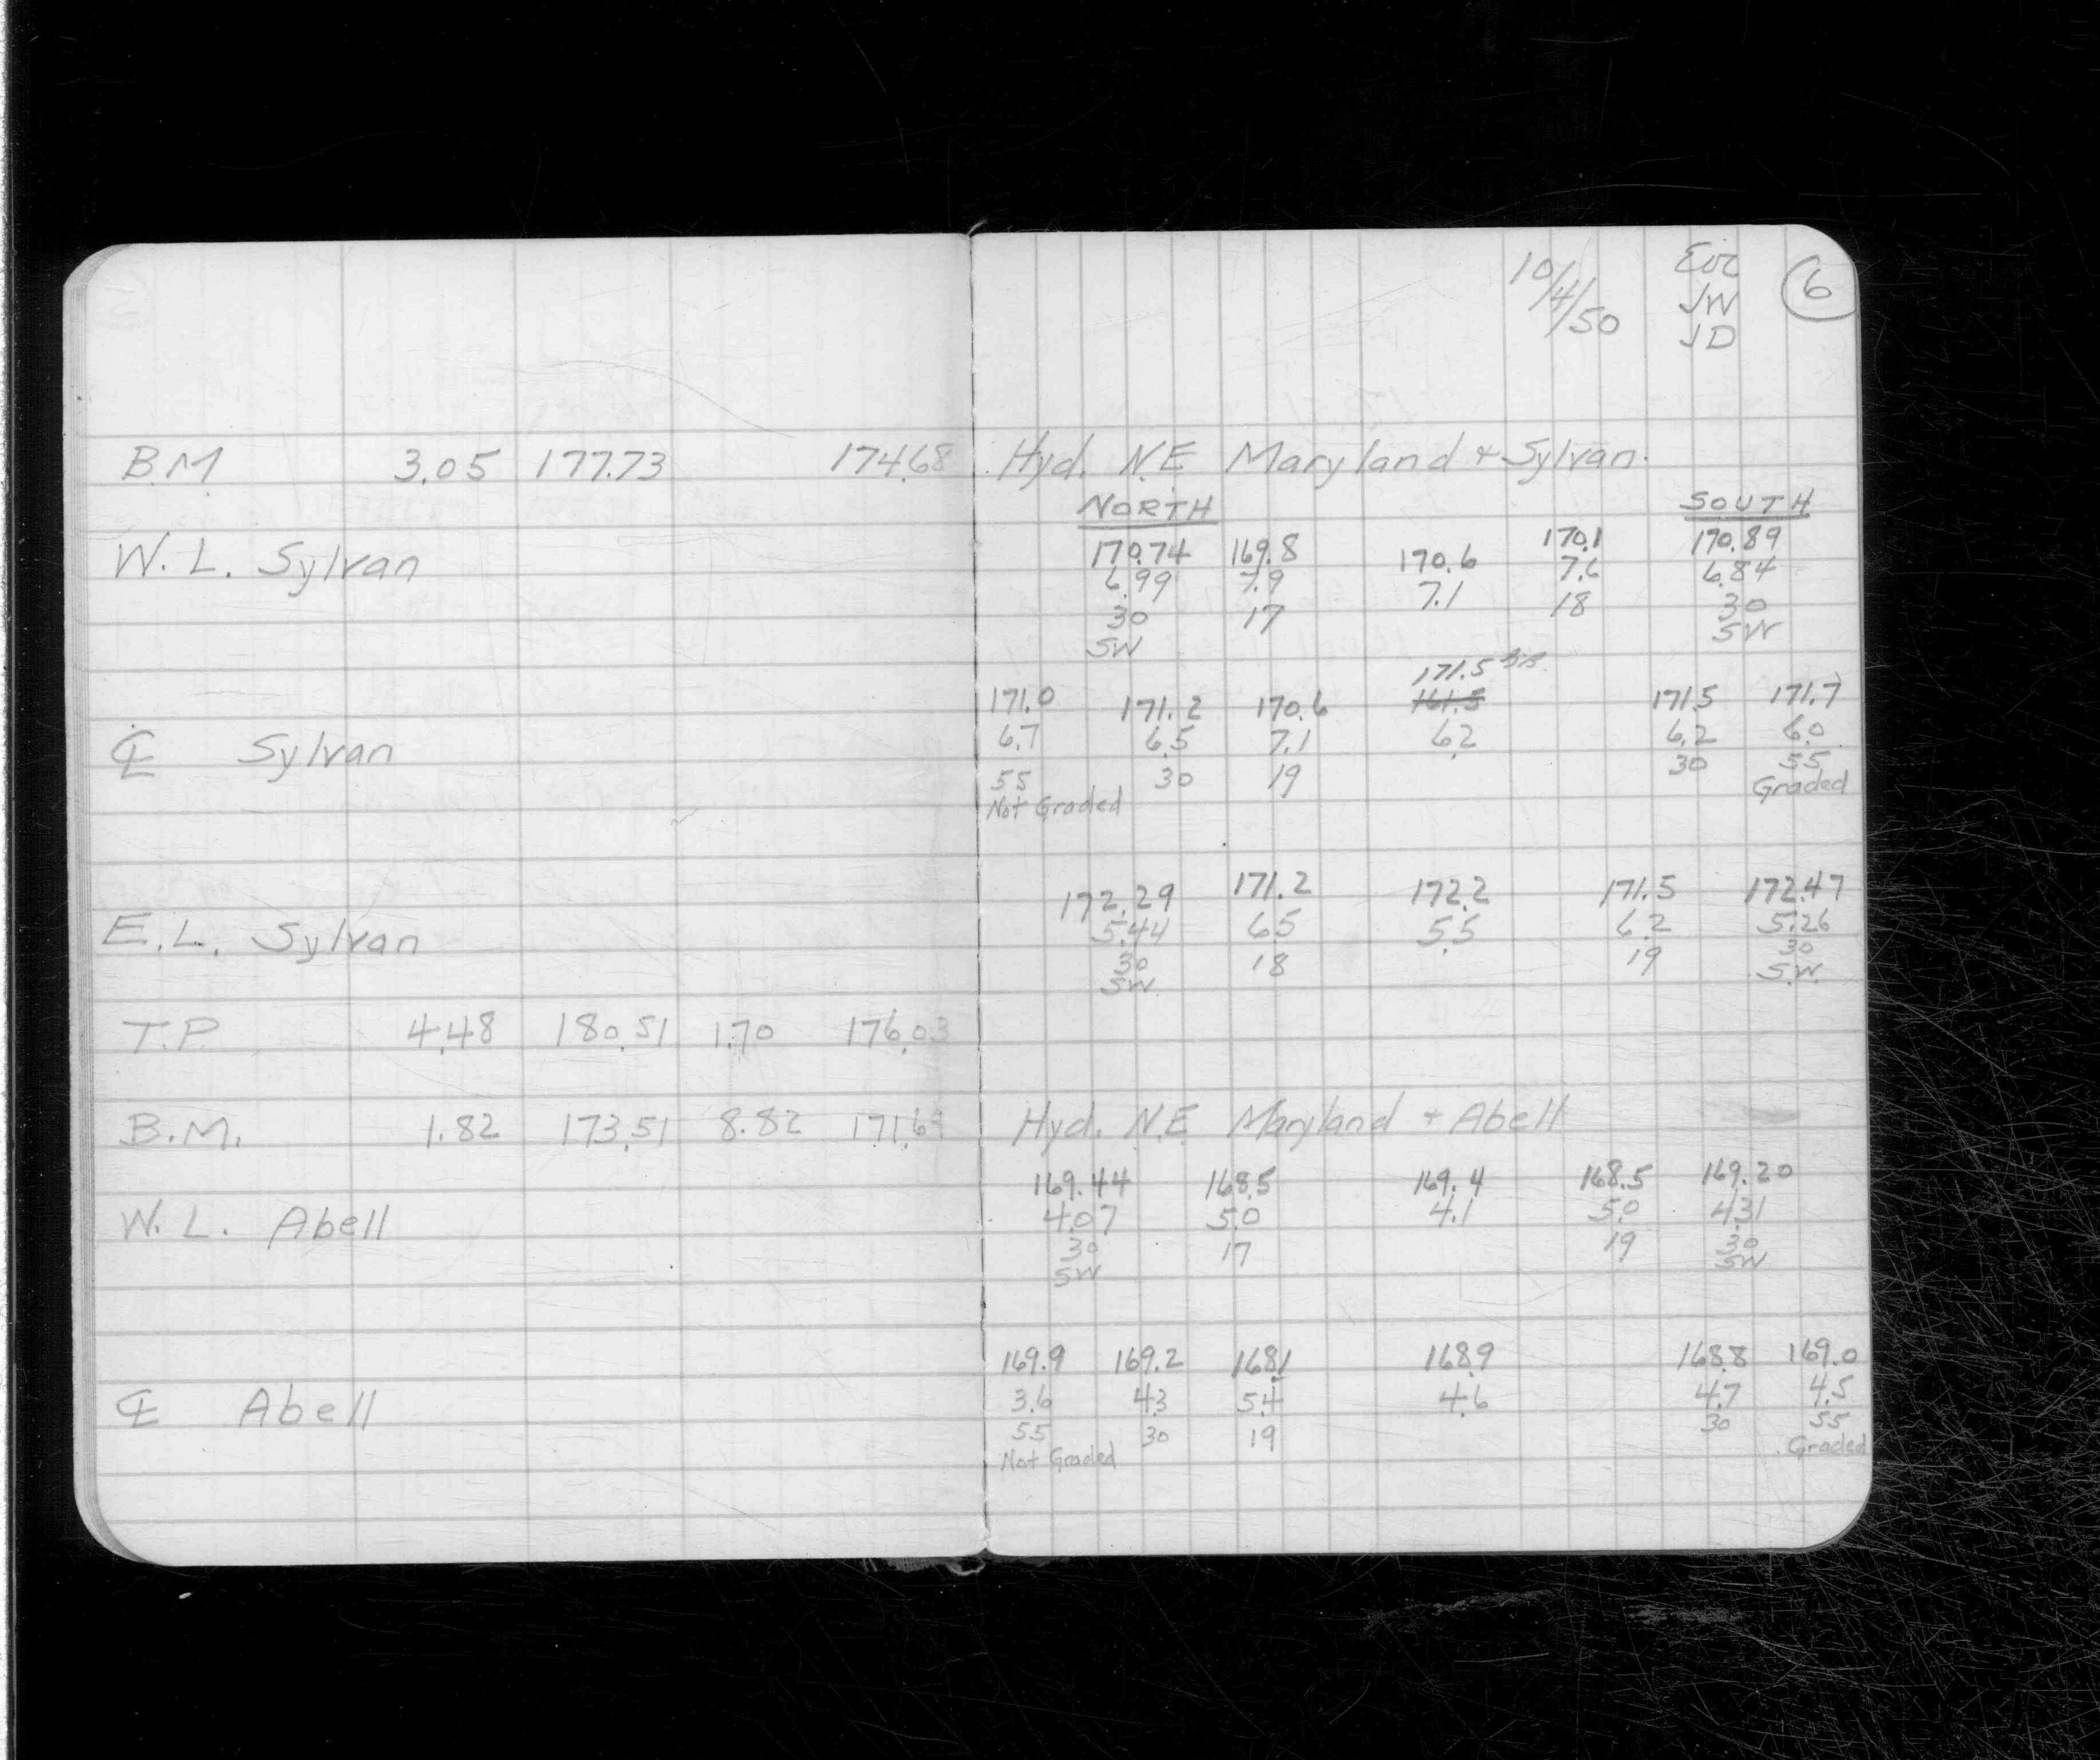 10/4/50 JW 6
JD
B.M 3.05 177.73 174.68 Hyd. N.E Maryland + Sylvan.
NORTH SOUTH
W. L. Sylvan
170.74 169.8 170.6 170.1 170.89
6.99 7.9 7.1 7.6 6.84
30 17 18 30
SW SW
171.5
171.0 171.2 170.6 161.5 171.5 171.7
℄ Sylvan
6.7 6.5 7.1 6.2 6.2 6.0
55 30 19 30 55
Not Graded Graded
172.29 171.2 172.2 171.5 172.47
E.L. Sylvan
5.44 6.5 5.5 6.2 5.26
30 18 19 30
SW S.W.
T.P. 4.48 180.51 1.70 176.03
B.M. 1.82 173.51 8.82 171.69 Hyd. N.E Maryland + Abell
169.44 168.5 169.4 168.5 169.20
W. L. Abell
4.07 5.0 4.1 5.0 4.31
30 17 19 30
SW SW
169.9 169.2 168.1 168.9 168.8 169.0
℄ Abell
3.6 4.3 5.4 4.6 4.7 4.5
55 30 19 30 55
Not Graded Graded